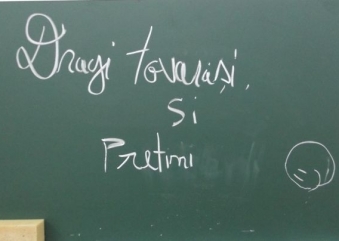 Dragi tovarăși,
Si
Pretini